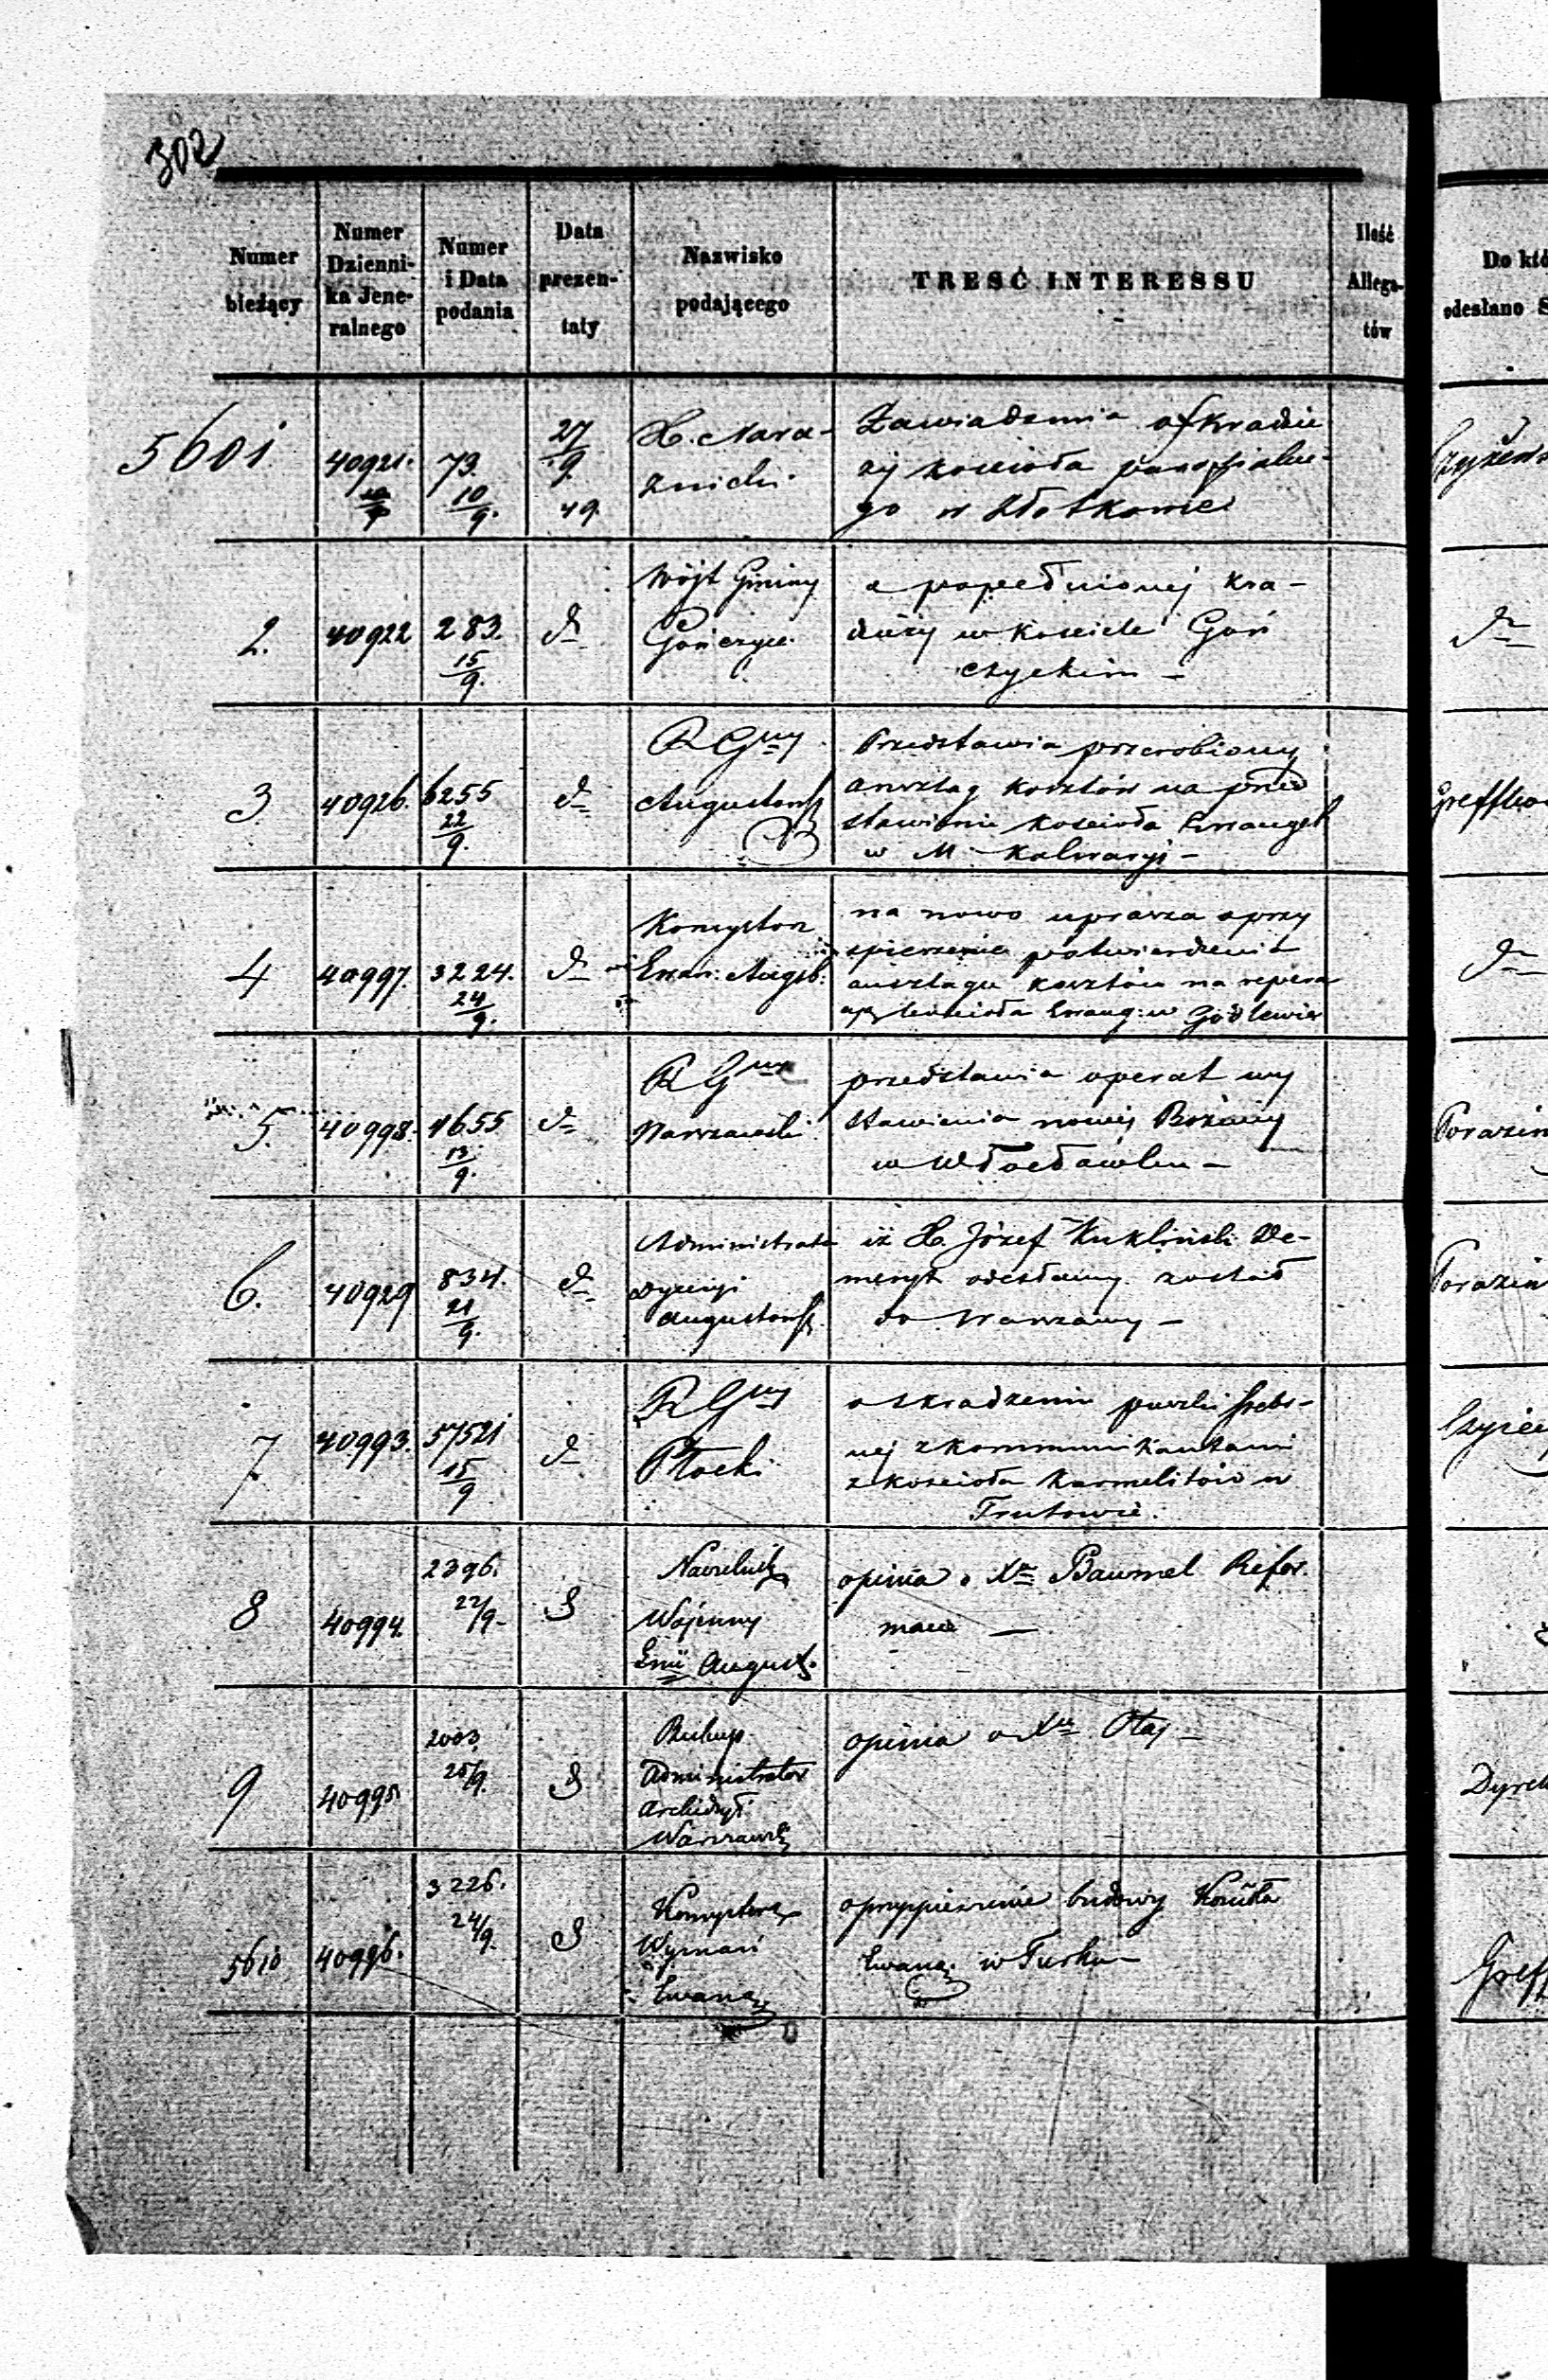 302
Numer bieżący
Numer Dzienni-ka Jene-ralnego
Numer i Data podania
Data prezen-taty
Nazwisko podającego
TREŚĆ INTERESSU
Ilość Allega-tów
Do któ
odesłano S
5601
40921.
79.
10/9.
27/9.
49.
X. Nara-
znicki
Zawiadamia o
ży kościoła parafialne-
go w Złotkowie
2.
40922
283.
15/9.
d=
Wójt Gminy
Gończyce
o popełnionej kra-
dzieży w kościele Goń
czyckim –
d=
3
40926.
6255
22/9.
d=
R Gny
Augustows
Przedstawia przerobiony
anszlag kosztów na
stawienie kościoła Ewangel
w M. Kalwaryi –
4
40997.
3224.
24/9.
d=
Konsystorz
Ewan: Augsb:
na nowo uprasza o przy
spieszenie potwierdzenia
anszlagu kosztów na repera
kościoła Ewang: w Godlewie
d=
5.
40998.
4655
13/9.
d=
R Gny
Warszawski
przedstawia operat wy
stawienia nowej Bożnicy
w Włocławku –
6.
40929
834.
21/9.
d=
Administrator
Dyecezyi
Augustows
iż X. Józef Kukliński De-
meryt odesłany został
do Warszawy –
7
40993.
57521
15/9
d=
R Gny
Płocki
o skradzeniu puszki srebr-
nej z kommunikantami
z kościoła Karmelitów w
Trutowie.
8
40994.
2396.
22/9-
d
Naczelnik
Wojenny
Gnii August.
opinia o Xu Baumel Refor.
macie —
9
40995
2003
25/9.
d
Biskup
Administrator
Archidyi
Warszaws
opinia o Xu
Dyrek
5610
40996.
3226.
24/9.
d
Konsystorz
Wyznań
Ewang
o przyspieszenie budowy Kościoła
Ewang. w Turku –
Greff